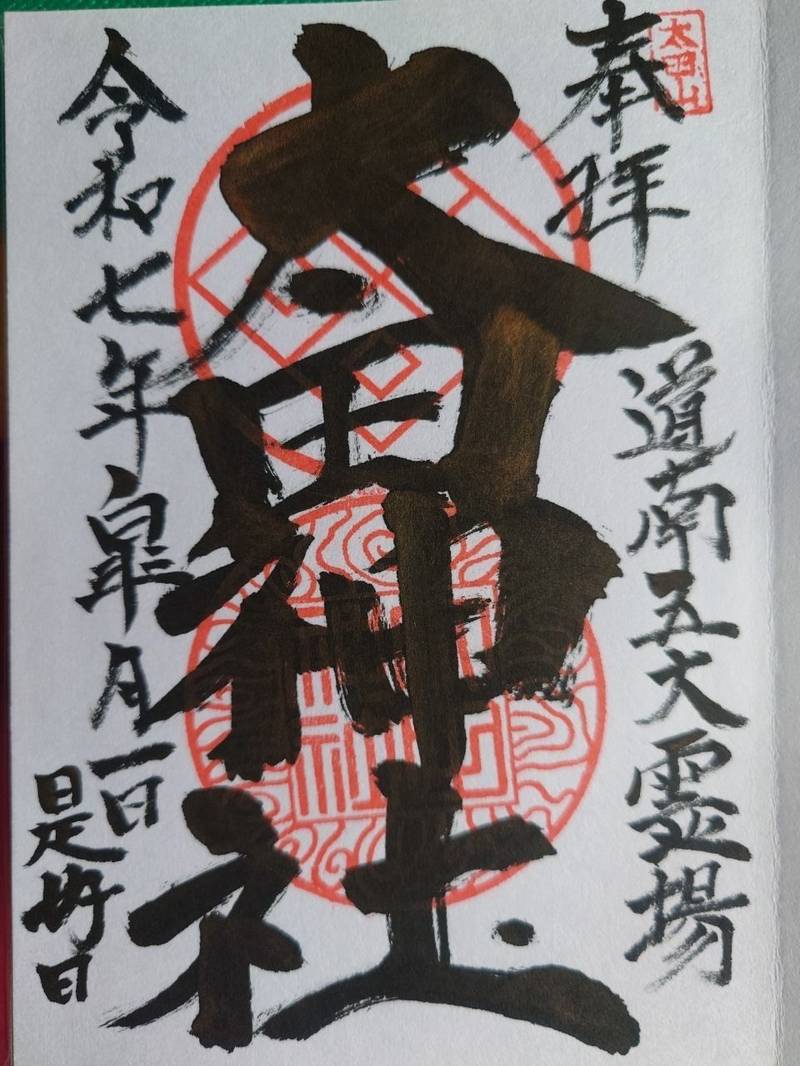 太田山
奉拝
道南五大霊場
太田神社
令和七年皐月一日
是好日